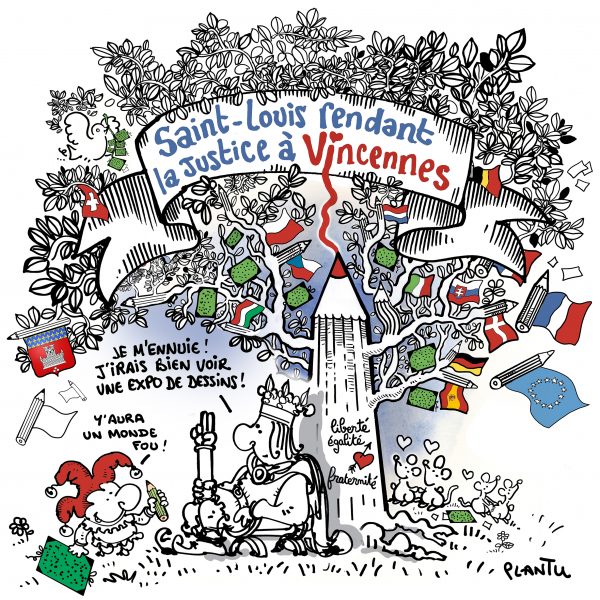 Saint-Louis rendant
la justice à Vincennes
JE M'ENNUIE !
J'IRAIS BIEN VOIR
UNE EXPO DE DESSINS !
Y'AURA
UN MONDE
FOU !
liberté
égalité
fraternité
PLANTU